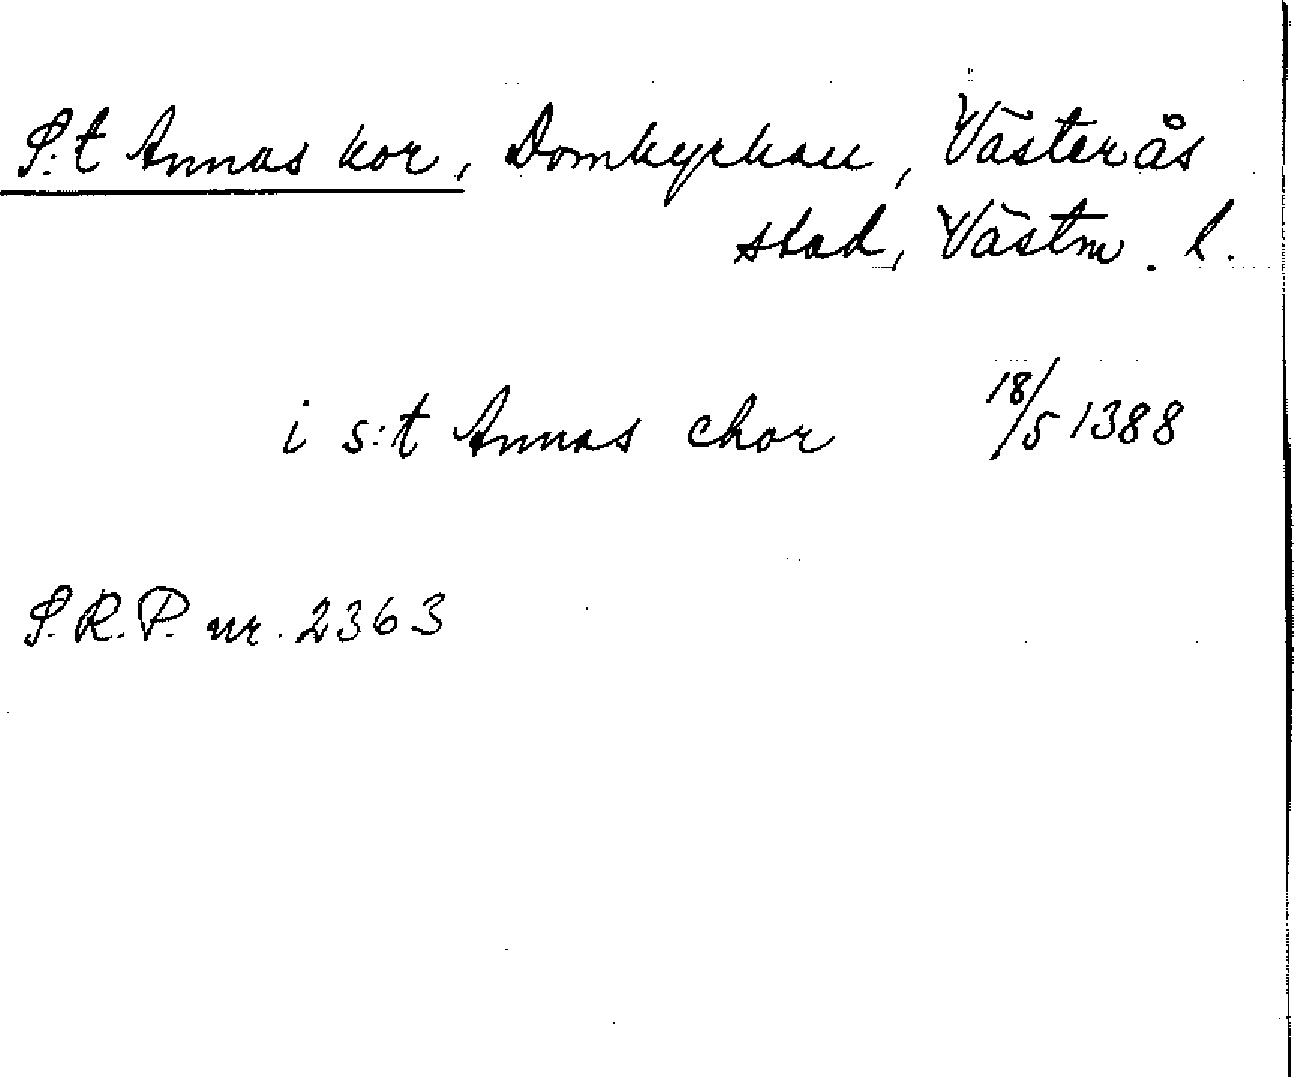 S:t Annas kor, Domkyrkan, Västerås
stad, Västm. l.
i s:t Annas chor 18/5 1388
S.R.P. nr. 2363